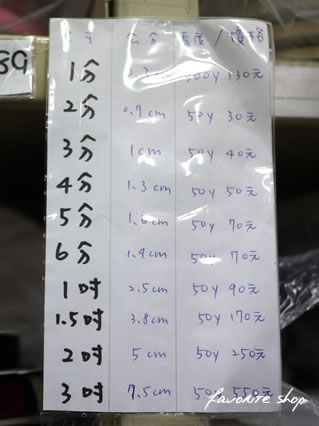 39
吋 公分 長度/價格
1分 0.3cm 300Y 130元
2分 0.7cm 50Y 30元
3分 1cm 50Y 40元
4分 1.3cm 50Y 50元
5分 1.6cm 50Y 70元
6分 1.9cm 50Y 70元
1吋 2.5cm 50Y 90元
1.5吋 3.8cm 50Y 170元
2吋 5cm 50Y 250元
3吋 7.5cm 50Y 550元
favorite shop